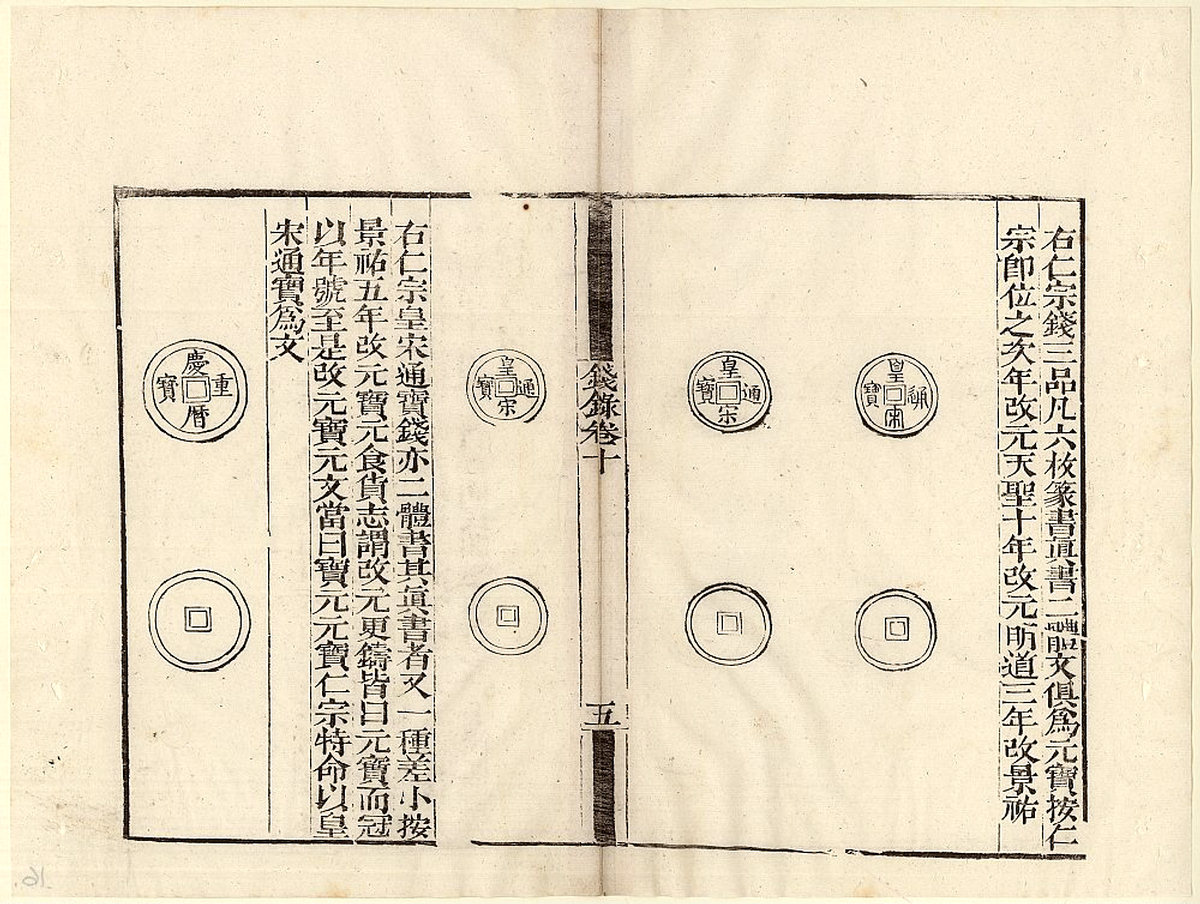 右仁宗錢三品凡六枚篆書眞書二體文俱爲元寶按仁
宗卽位之次年改元天聖十年改元明道三年改景祐
皇宋通寶
皇宋通寶
錢錄卷十
五
皇宋通寶
右仁宗皇宋通寶錢亦二體書其眞書者又一種差小按
景祐五年改元寶元食貨志謂改元更鑄皆曰元寶而冠
以年號至是改元寶元文當曰寶元元寶仁宗特命以皇
宋通寶爲文
慶暦重寶
16.